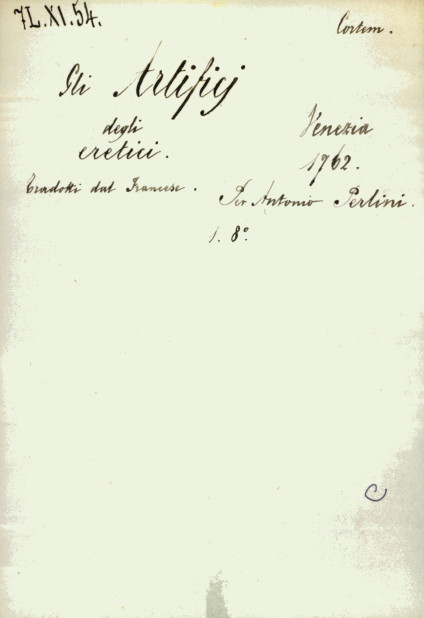 7L.XI.54.
Cortem.
Gli Artificj
degli
eretici.
Venezia
1762.
Tradotti dal Francese.
Per Antonio Perlini.
1. 8°.
C